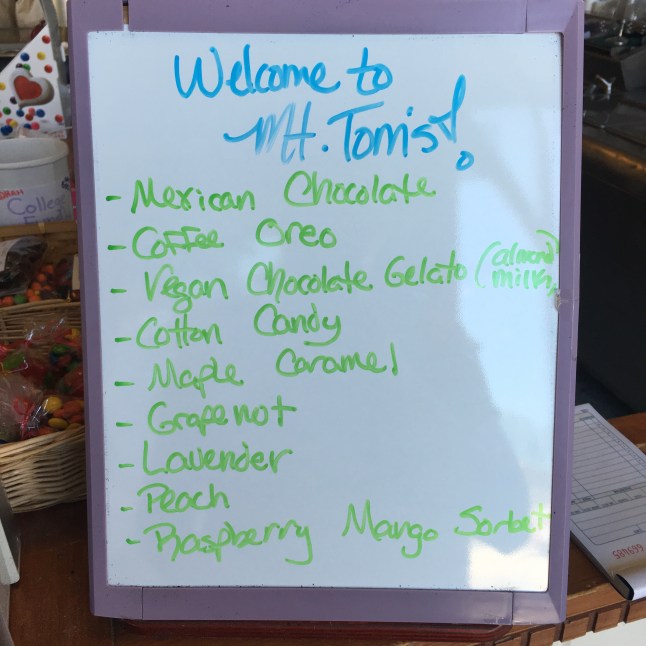 Welcome to
Mt. Tom's!
- Mexican Chocolate
- Coffee Oreo
- Vegan Chocolate Gelato (almond milk)
- Cotton Candy
- Maple Caramel
- Grapenut
- Lavender
- Peach
- Raspberry Mango Sorbet